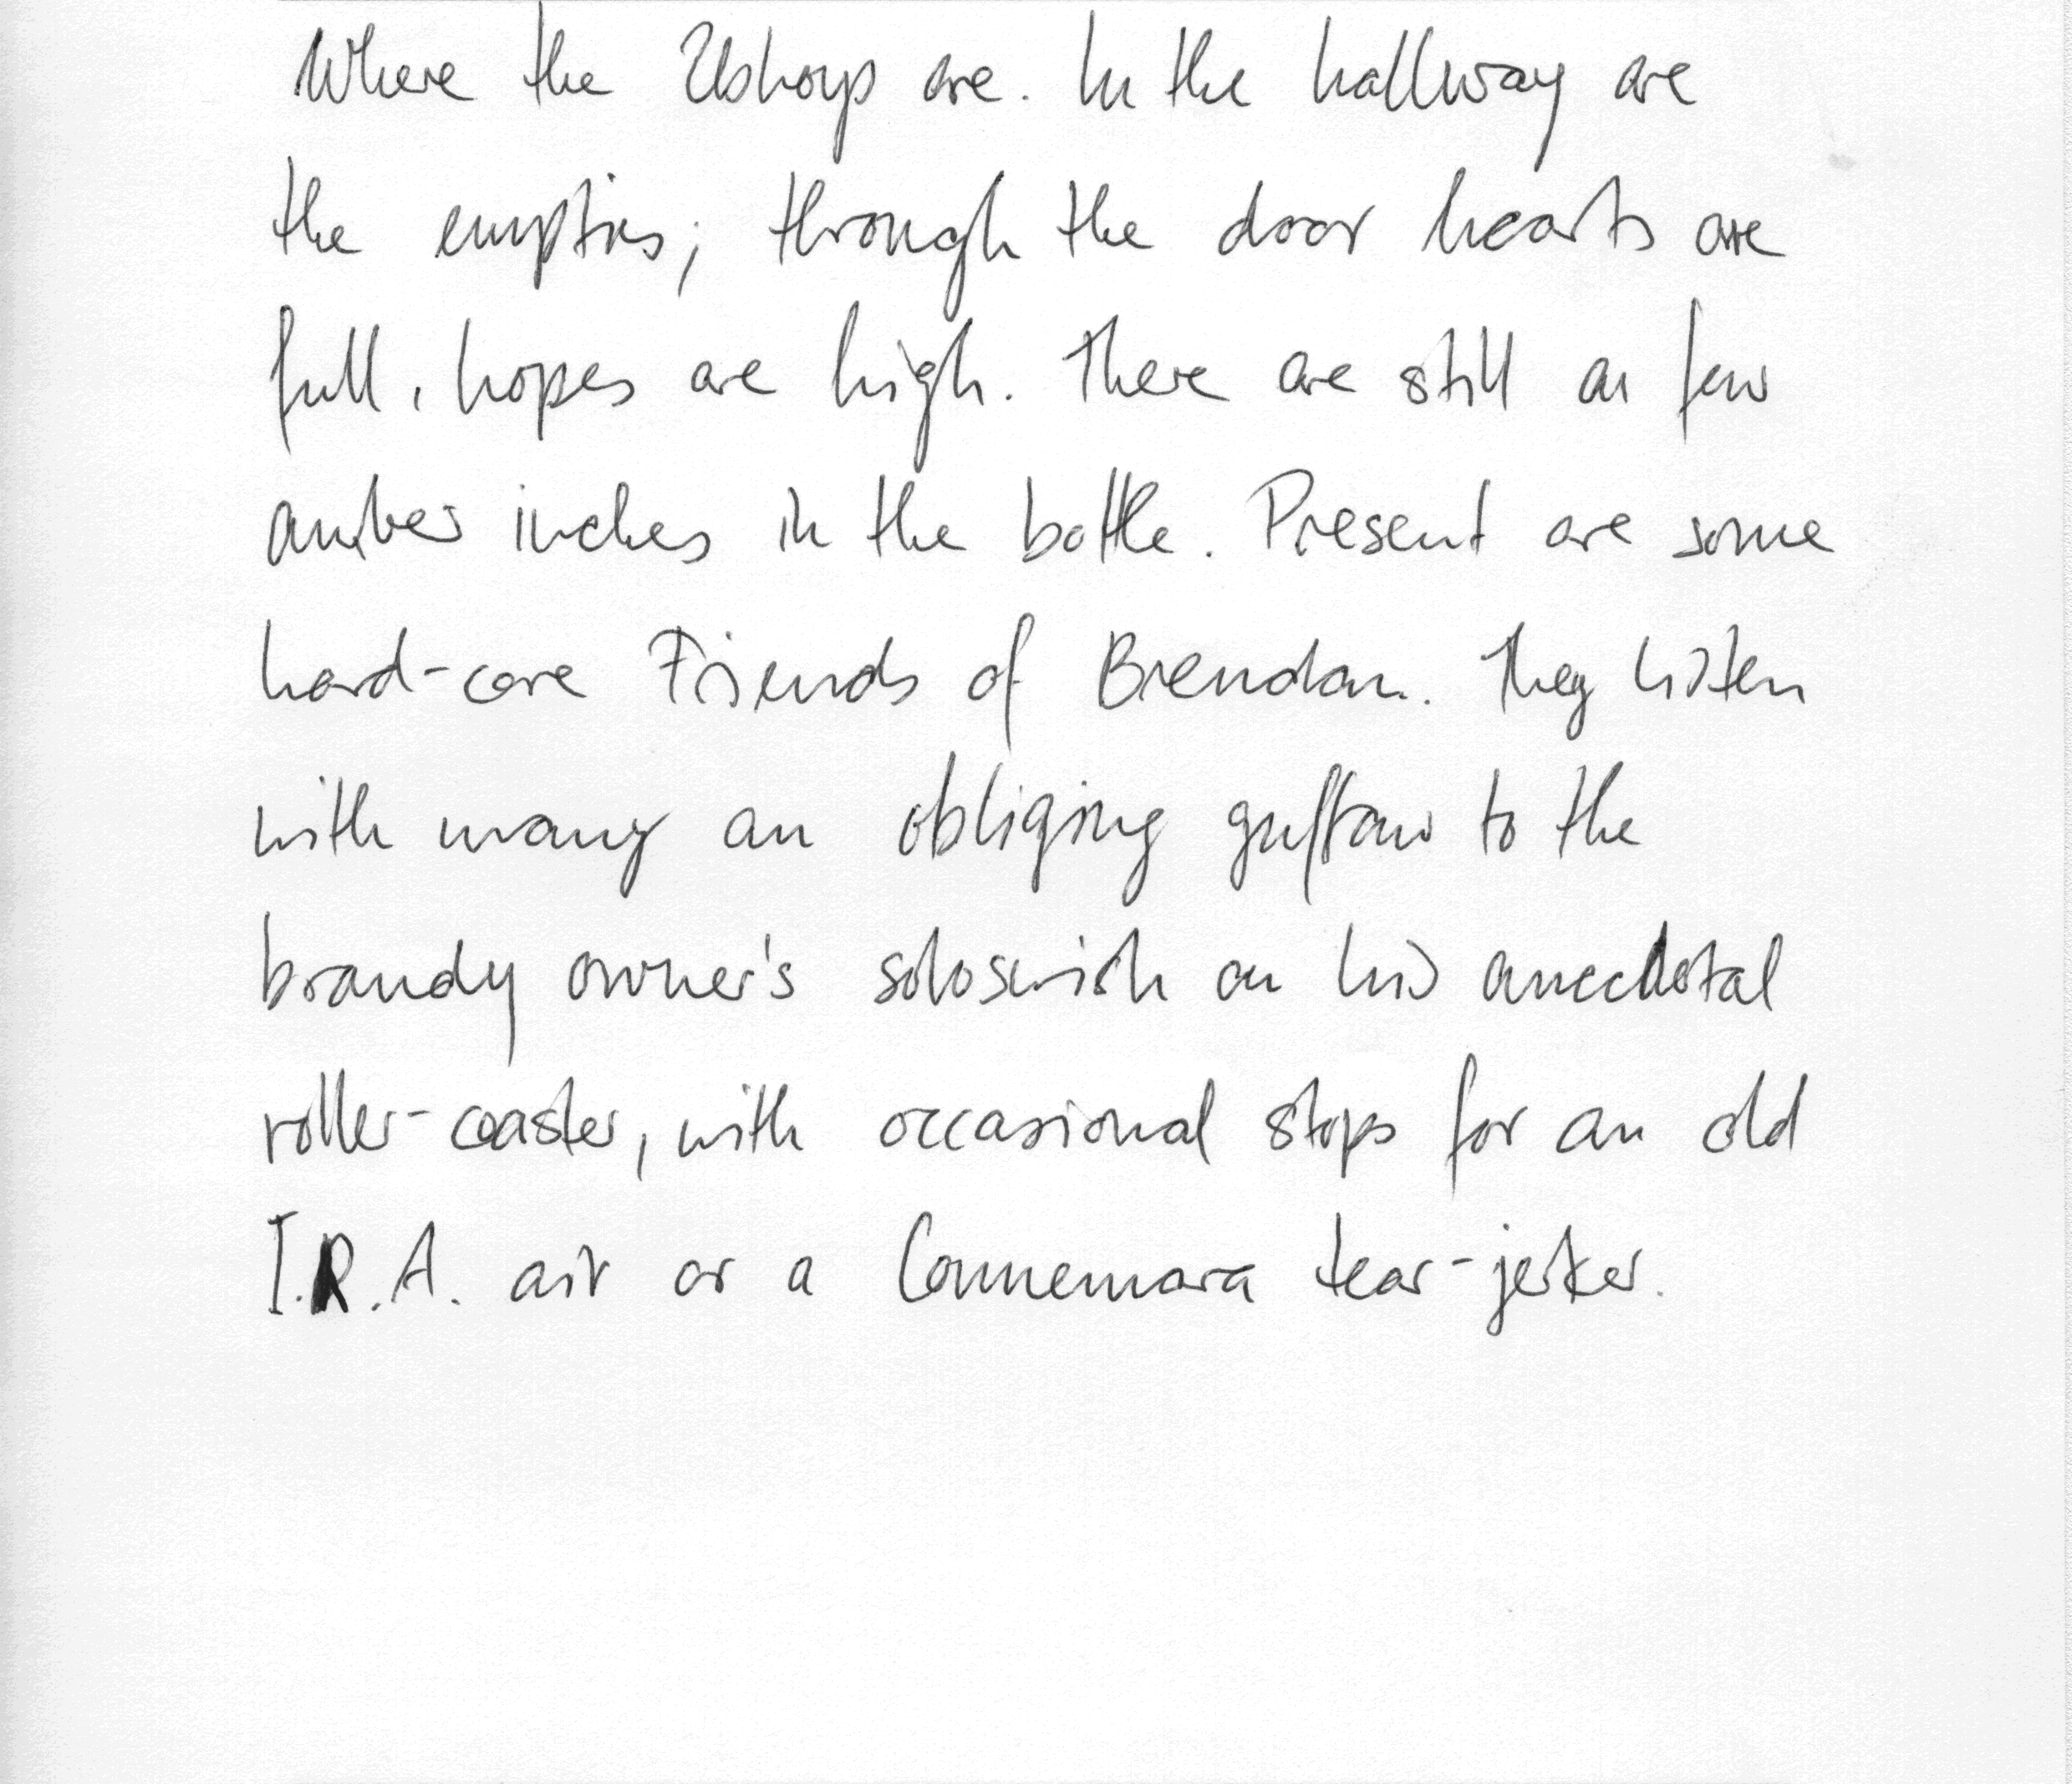 Where the are. In the hallway are
the empties; through the door hearts are
full, hopes are high. There are still a few
amber inches in the bottle. Present are some
hard-core Friends of Brendan. They listen
with many an obliging guffaw to the
brandy owner's on his anecdotal
roller-coaster, with occasional stops for an old
I.R.A. air or a Connemara tear-jerker.